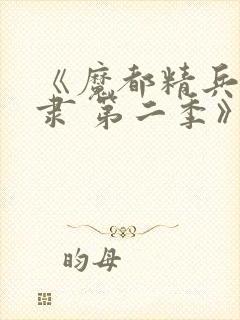 《魔都精兵
隶 第二季》
昀母